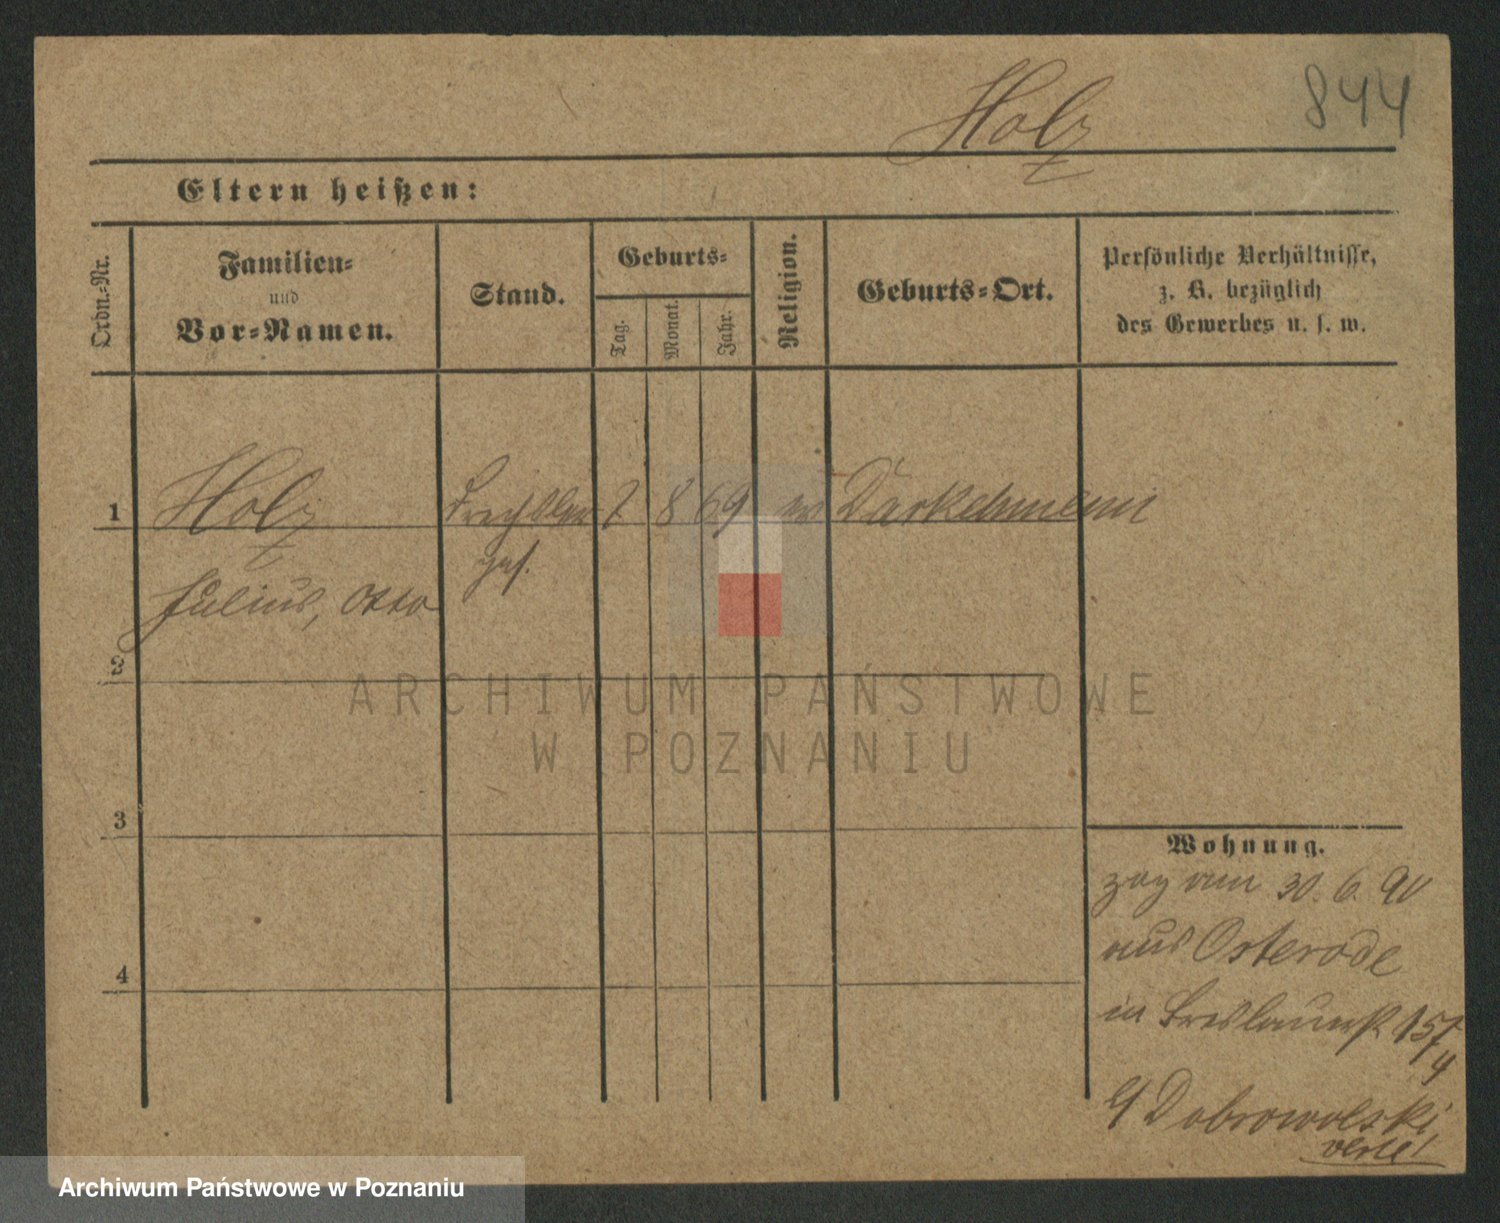 Holz
844
Eltern heißen:
Ordn.-Nr.
Familien-
und
Vor-Namen.
Stand.
Geburts-
Tag.
Monat.
Jahr.
Religion.
Geburts-Ort.
Persönliche Verhältnisse,
z. B. bezüglich
des Gewerbes u. s. w.
1
Holz
Julius, Otto
8 69 ev Darkehmen
2
3
4
Wohnung.
zog am 30. 6. 90
aus Osterode
in Breslauerst 15/4
Dobrowolski
verte!
ARCHIWUM PAŃSTWOWE
W POZNANIU
Archiwum Państwowe w Poznaniu